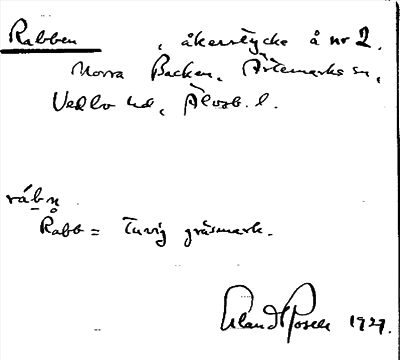 Rabben, åkerstycke å nr 2.
Norra Backen, Ärtemarks sn,
Vedbo hd, Älvsb. l.
råbn
Råbb = Tuvig gräsmark.
Erland Rosell 1929.